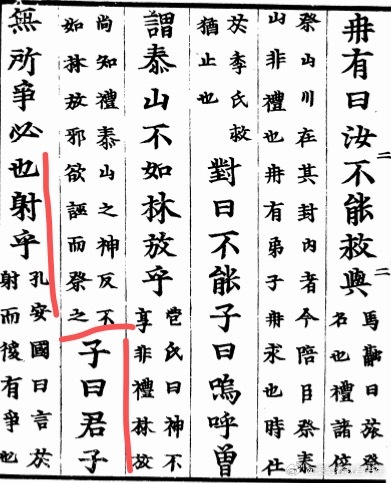 冉有曰汝不能救與
馬融曰旅祭
名也禮諸侯
祭山川在其封內者今陪臣祭泰
山非禮也冉有弟子冉求也時仕
於季氏救
猶止也
對曰不能子曰嗚呼曾
謂泰山不如林放乎
苞氏曰神不
享非禮林放
尚知禮泰山之神反不
如林放邪欲誣而祭之
子曰君子
無所爭必也射乎
孔安國曰言於
射而後有爭也